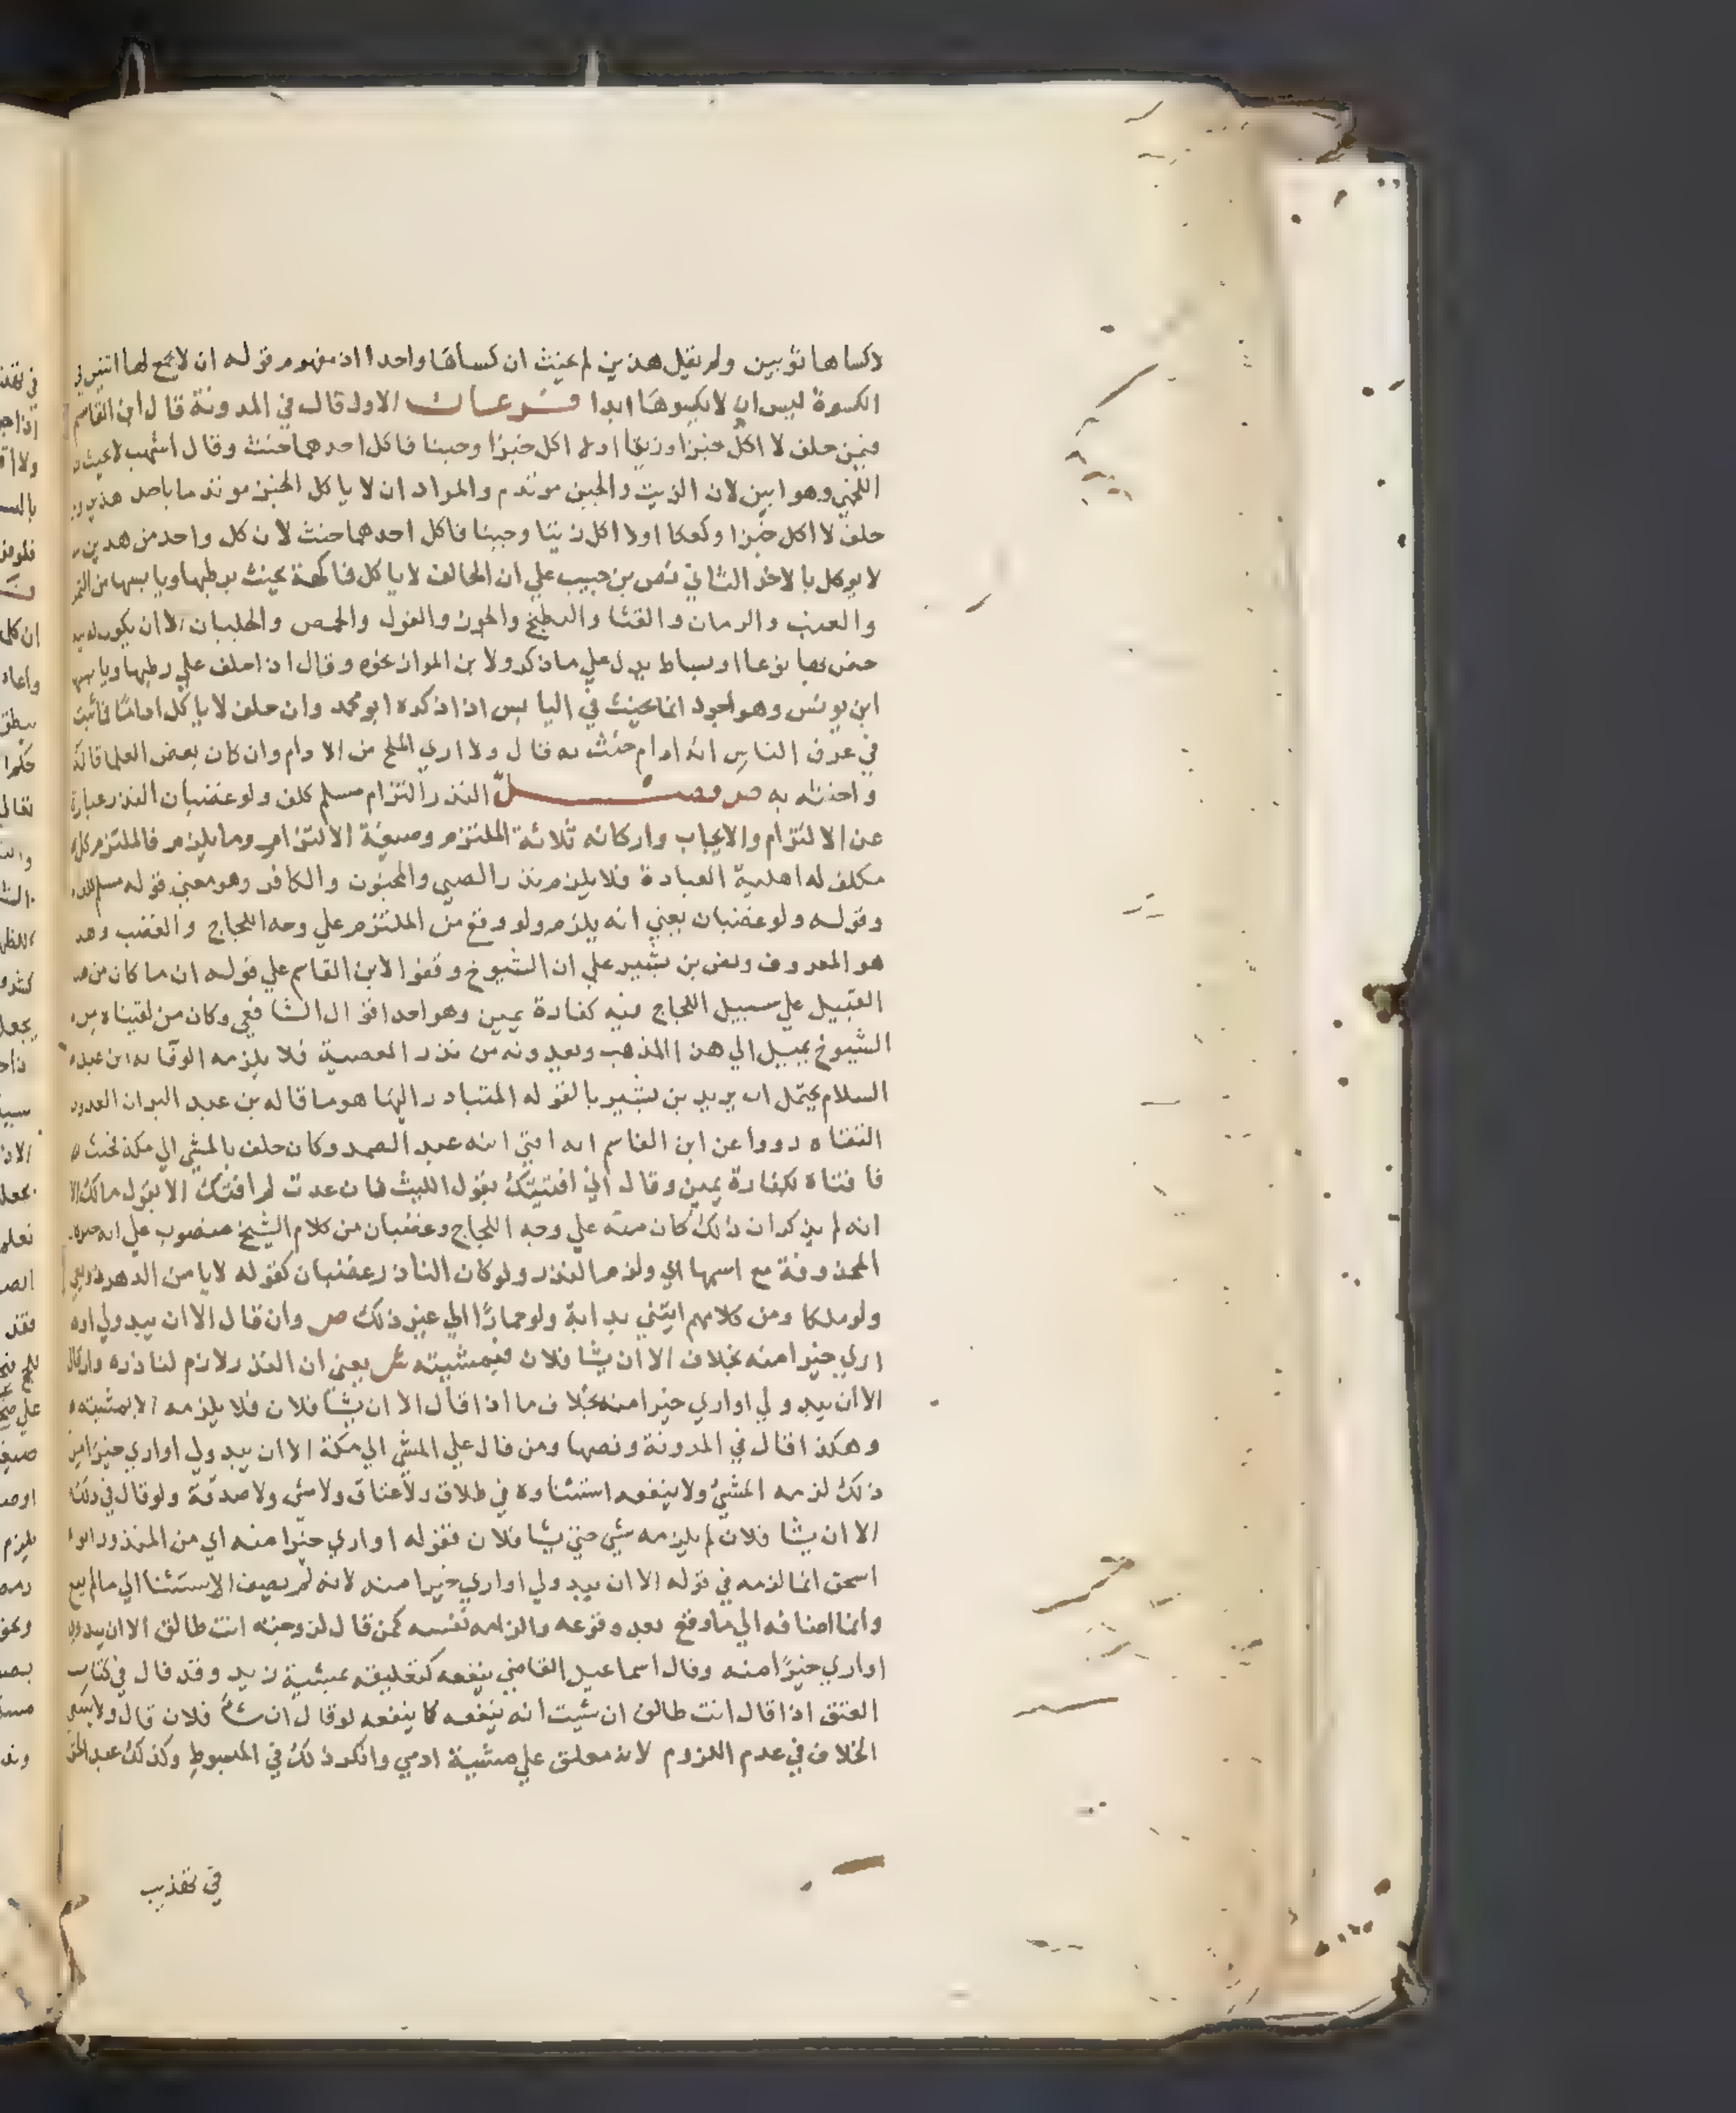 لاكساها ثوبين ولم يقل هذين لم يحنث ان كساها واحدا اذ مفهوم قوله ان لا يجمع لها اثنين في
الكسوة ليس ان لا يكسوها ابدا فرعان الاول قال في المدونة قال ابن القاسم
فيمن حلف لا اكل خبزا وزيتا اولا اكل خبزا وجبنا فاكل احدهما حنث وقال اشهب لا يحنث
اللخمي وهو ابين لان الزيت والجبن موتدم والمراد ان لا ياكل الخبز موتدما باحد هذين
حلف لا اكل خبزا وكعكا اولا اكل زيتا وجبنا فاكل احدهما حنث لان كل واحد من هذين
لا يوكل بالاخر الثاني نص بن حبيب علي ان الحالف لا ياكل فاكهة يحنث برطبها ويابسها من التمر
والعنب والرمان والقثا والبطيخ والجوز والفول والحمص والجلبان الا ان يكون له
خص بها نوعا او بساط يدل علي ما ذكر ولابن المواز نحوه وقال اذا حلف علي رطبها ويابسها
ابن يونس وهو اجود انما يحنث في اليابس اذا ذكره ابو محمد وان حلف لا ياكل اداما فاثبت
في عرف الناس انه ادام حنث به قال ولا اري الملح من الادام وان كان بعض العلما قاله
واحنثه به ص فصل النذر التزام مسلم كلف ولو غضبان النذر عبارة
عن الالتزام والايجاب واركانه ثلاثة الملتزم وصيغة الالتزام وما يلزم فالملتزم كل
مكلف له اهلية العبادة فلا يلزم نذر الصبي والمجنون والكافر وهو معني قوله مسلم
وقوله ولو غضبان يعني انه يلزم ولو وقع من الملتزم علي وجه اللجاج والغضب وهذ
هو المعروف ونص بن بشير علي ان الشيوخ وقفوا لابن القاسم علي قوله ان ما كان من هذ
القبيل علي سبيل اللجاج فيه كفارة يمين وهو احد اقوال الشافعي وكان من لقيناه من
الشيوخ يميل الي هذا المذهب ويعدونه من نذر المعصية فلا يلزمه الوفا به ابن عبد
السلام يحتمل ان يريد بن بشير بالقوله المتبادر اليها هو ما قاله بن عبد البر ان العدول
الثقاة رووا عن ابن القاسم انه افتي ابنه عبد الصمد وكان حلف بالمشي الي مكة فحنث
فافتاه بكفارة يمين وقال اني افتيتك بقول الليث فان عدت لم افتك الا بقول مالك الا
انه لم يذكر ان ذلك كان منه علي وجه اللجاج وغضبان من كلام الشيخ منصوب علي انه خبر
المحذوفة مع اسمها اي ولزم النذر ولو كان الناذر غضبان كقوله لا يامن الدهر ذو بغي
ولو ملكا ومن كلامهم ايتني بدابة ولو حمارًا الي غير ذلك ص وان قال الا ان يبدو لي او
اري خيرا منه بخلاف الا ان يشا فلان فبمشيته ش يعني ان النذر لازم لناذره وان قال
الا ان يبدو لي او اري خيرا منه بخلاف ما اذا قال الا ان يشا فلان فلا يلزمه الا بمشيته
وهكذا قال في المدونة ونصها ومن قال علي المشي الي مكة الا ان يبدو لي او اري خيرا من
ذلك لزمه المشي ولا ينفعه استثناوه في طلاق ولا عتاق ولا مشي ولا صدقة ولو قال في ذلك
الا ان يشا فلان لم يلزمه شي حتي يشا فلان فقوله او اري خيرا منه اي من المنذور ابوا
اسحق انما لزمه في قوله الا ان يبدو لي او اري خيرا منه لانه لم يضف الاستثنا الي ما لم يقع
وانما اضافه الي ما وقع بعد وقوعه والزامه نفسه كمن قال لزوجته انت طالق الا ان يبدو لي
او اري خيرًا منه وقال اسماعيل القاضي ينفعه كتعليقه بمشية زيد وقد قال في كتاب
العتق اذا قال انت طالق ان شيت انه ينفعه كما ينفعه لو قال ان شا فلان قال ولا ينبغي
الخلاف في عدم اللزوم لانه معلق علي مشية ادمي وانكر ذلك في المبسوط وكذلك عبد الحق
في تهذيب